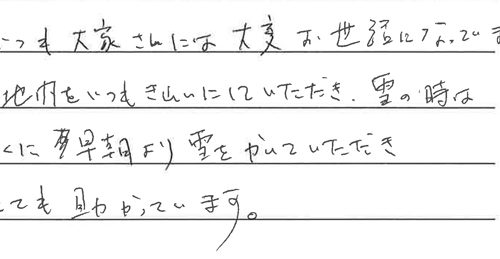 いつも大家さんには大変お世話になっていま
地内をいつもきれいにしていただき、雪の時は
くに早朝より雪をかいていただき
ても助かっています。